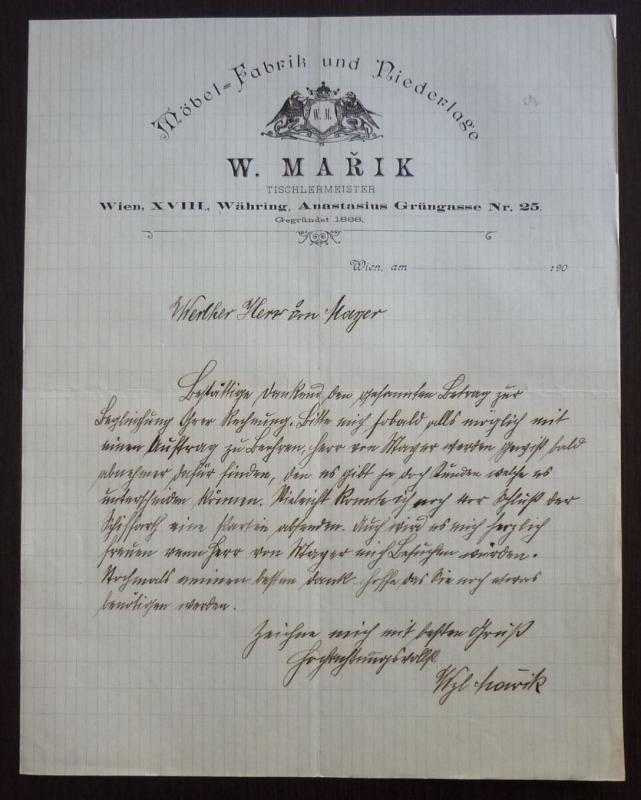 Möbel-Fabrik und Niederlage
W. M.
W. MAŘIK
TISCHLERMEISTER
Wien, XVIII., Währing, Anastasius Grüngasse Nr. 25.
Gegründet 1868.
Wien, am 190
Werther Herr von Mayer
Bestättige dankend den gesannten Betrag zur
Begleichung Ihrer Rechnung. Bitte mich sobald alls möglich mit
einen Auftrag zu Beehren, Herr von Mayer werden gewiß bald
abnehmer dafür finden, den es gibt ja doch Kunden welche es
unterscheiden können. Vieleicht könnte ich noch vor Schluß der
Schiffarth eine Partie absenden. Auch wird es mich herzlich
freuen wenn Herr von Mayer mich Besuchen würden.
Nochmals meinen besten Dank hoffe das Sie noch etwas
benötigen werden.
Zeichne mich mit besten Gruß
Hochachtungsvollst
Wzl Mařik